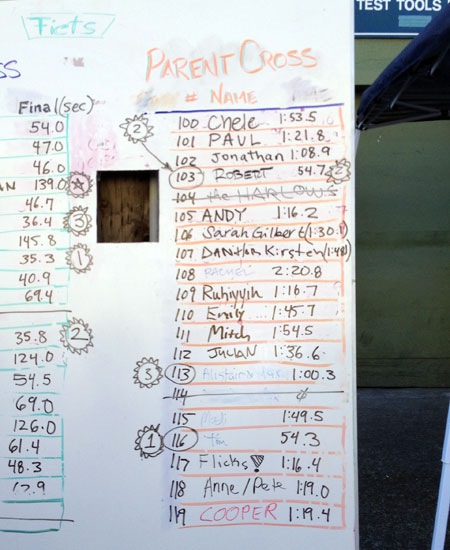 TEST TOOLS
Fiets
PARENT CROSS
# NAME
Final (sec)
54.0
47.0
46.0
139.0
46.7
36.4 3
145.8
35.3 1
40.9
69.4
35.8 2
124.0
54.5
69.0
126.0
61.4
48.3
2
100 Chele 1:53.5
101 PAUL 1:21.8
102 Jonathan 1:08.9
103 ROBERT 54.7 2
104 the HARLOWS
105 ANDY 1:16.2
106 Sarah Gilbert (1:30.
107 Kirsten (1:48
108 RACHEL 2:20.8
109 Ruhiyyih 1:16.7
110 Emily 1:45.7
111 Mitch 1:54.5
112 JULIAN 1:36.6
3 113 1:00.3
114
115 1:49.5
1 116 Tim 54.3
117 Flicks! 1:16.4
118 Anne/Pete 1:19.0
119 COOPER 1:19.4